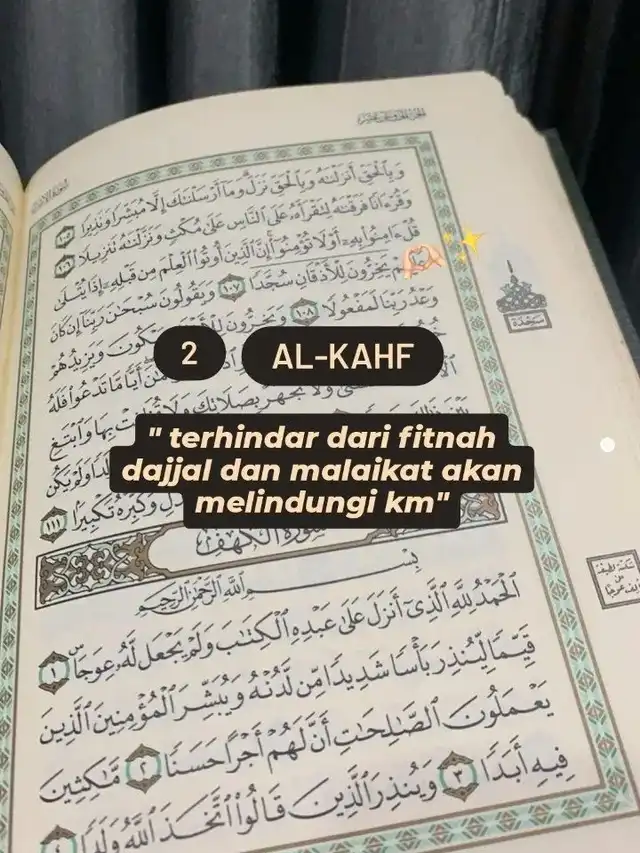 وَبِٱلْحَقِّ أَنزَلْنَٰهُ وَبِٱلْحَقِّ نَزَلَ وَمَآ أَرْسَلْنَٰكَ إِلَّا مُبَشِّرًا وَنَذِيرًا ١٠٥
وَقُرْءَانًا فَرَقْنَٰهُ لِتَقْرَأَهُۥ عَلَى ٱلنَّاسِ عَلَىٰ مُكْثٍ وَنَزَّلْنَٰهُ تَنزِيلًا ١٠٦
قُلْ ءَامِنُوا۟ بِهِۦٓ أَوْ لَا تُؤْمِنُوٓا۟ إِنَّ ٱلَّذِينَ أُوتُوا۟ ٱلْعِلْمَ مِن قَبْلِهِۦٓ إِذَا يُتْلَىٰ
يَخِرُّونَ لِلْأَذْقَانِ سُجَّدًا ١٠٧ وَيَقُولُونَ سُبْحَٰنَ رَبِّنَآ إِن كَانَ
وَعْدُ رَبِّنَا لَمَفْعُولًا ١٠٨ وَيَخِرُّونَ يَبْكُونَ وَيَزِيدُهُمْ
سَجْدَة
2 AL-KAHF
أَيًّا مَّا تَدْعُوا۟ فَلَهُ
وَلَا تَجْهَرْ بِصَلَاتِكَ وَلَا بِهَا وَٱبْتَغِ
" terhindar dari fitnah
dajjal dan malaikat akan
melindungi km"
وَلَمْ يَكُن
وَكَبِّرْهُ تَكْبِيرًۢا ١١١
سُورَةُ ٱلْكَهْفِ
بِسْمِ ٱللَّهِ ٱلرَّحْمَٰنِ ٱلرَّحِيمِ
ٱلْحَمْدُ لِلَّهِ ٱلَّذِىٓ أَنزَلَ عَلَىٰ عَبْدِهِ ٱلْكِتَٰبَ وَلَمْ يَجْعَل لَّهُۥ عِوَجَاۜ ١
قَيِّمًا لِّيُنذِرَ بَأْسًا شَدِيدًا مِّن لَّدُنْهُ وَيُبَشِّرَ ٱلْمُؤْمِنِينَ ٱلَّذِينَ
يَعْمَلُونَ ٱلصَّٰلِحَٰتِ أَنَّ لَهُمْ أَجْرًا حَسَنًا ٢ مَّٰكِثِينَ
فِيهِ أَبَدًا ٣ وَيُنذِرَ ٱلَّذِينَ قَالُوا۟ ٱتَّخَذَ ٱللَّهُ وَلَدًا ٤